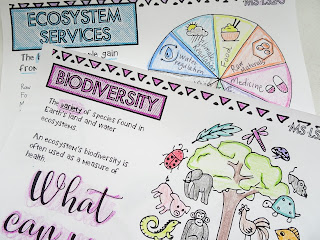 ECOSYSTEM
SERVICES
The
gain
from
Water
Food
Raw
Materials
Medicine
BIODIVERSITY
The variety of species found in
Earth's land and water
ecosystems.
An ecosystem's biodiversity is
often used as a measure of
health.
What
can